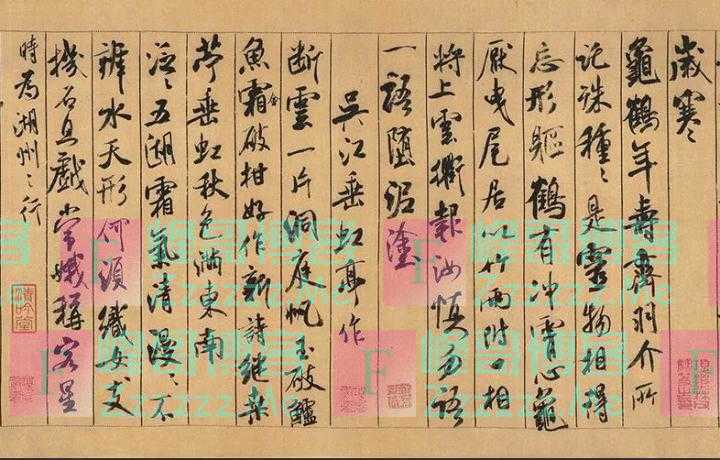 歲寒〻
龜鶴年壽齊羽介所
託殊種〻是靈物相得
忘形軀鶴有冲霄心龜
厭曳尾居以竹兩附口相
將上雲衢報汝慎勿語
一語墮泥塗
吳江垂虹亭作
断雲一片洞庭帆玉破鱸
魚霜金破柑好作新詩継桑
苧垂虹秋色滿東南
泛〻五湖霜氣清漫〻不
辨水天形何須織女支
機石且戲常娥稱客星
時為湖州之行
清吟堂
Zzzzzz.Me